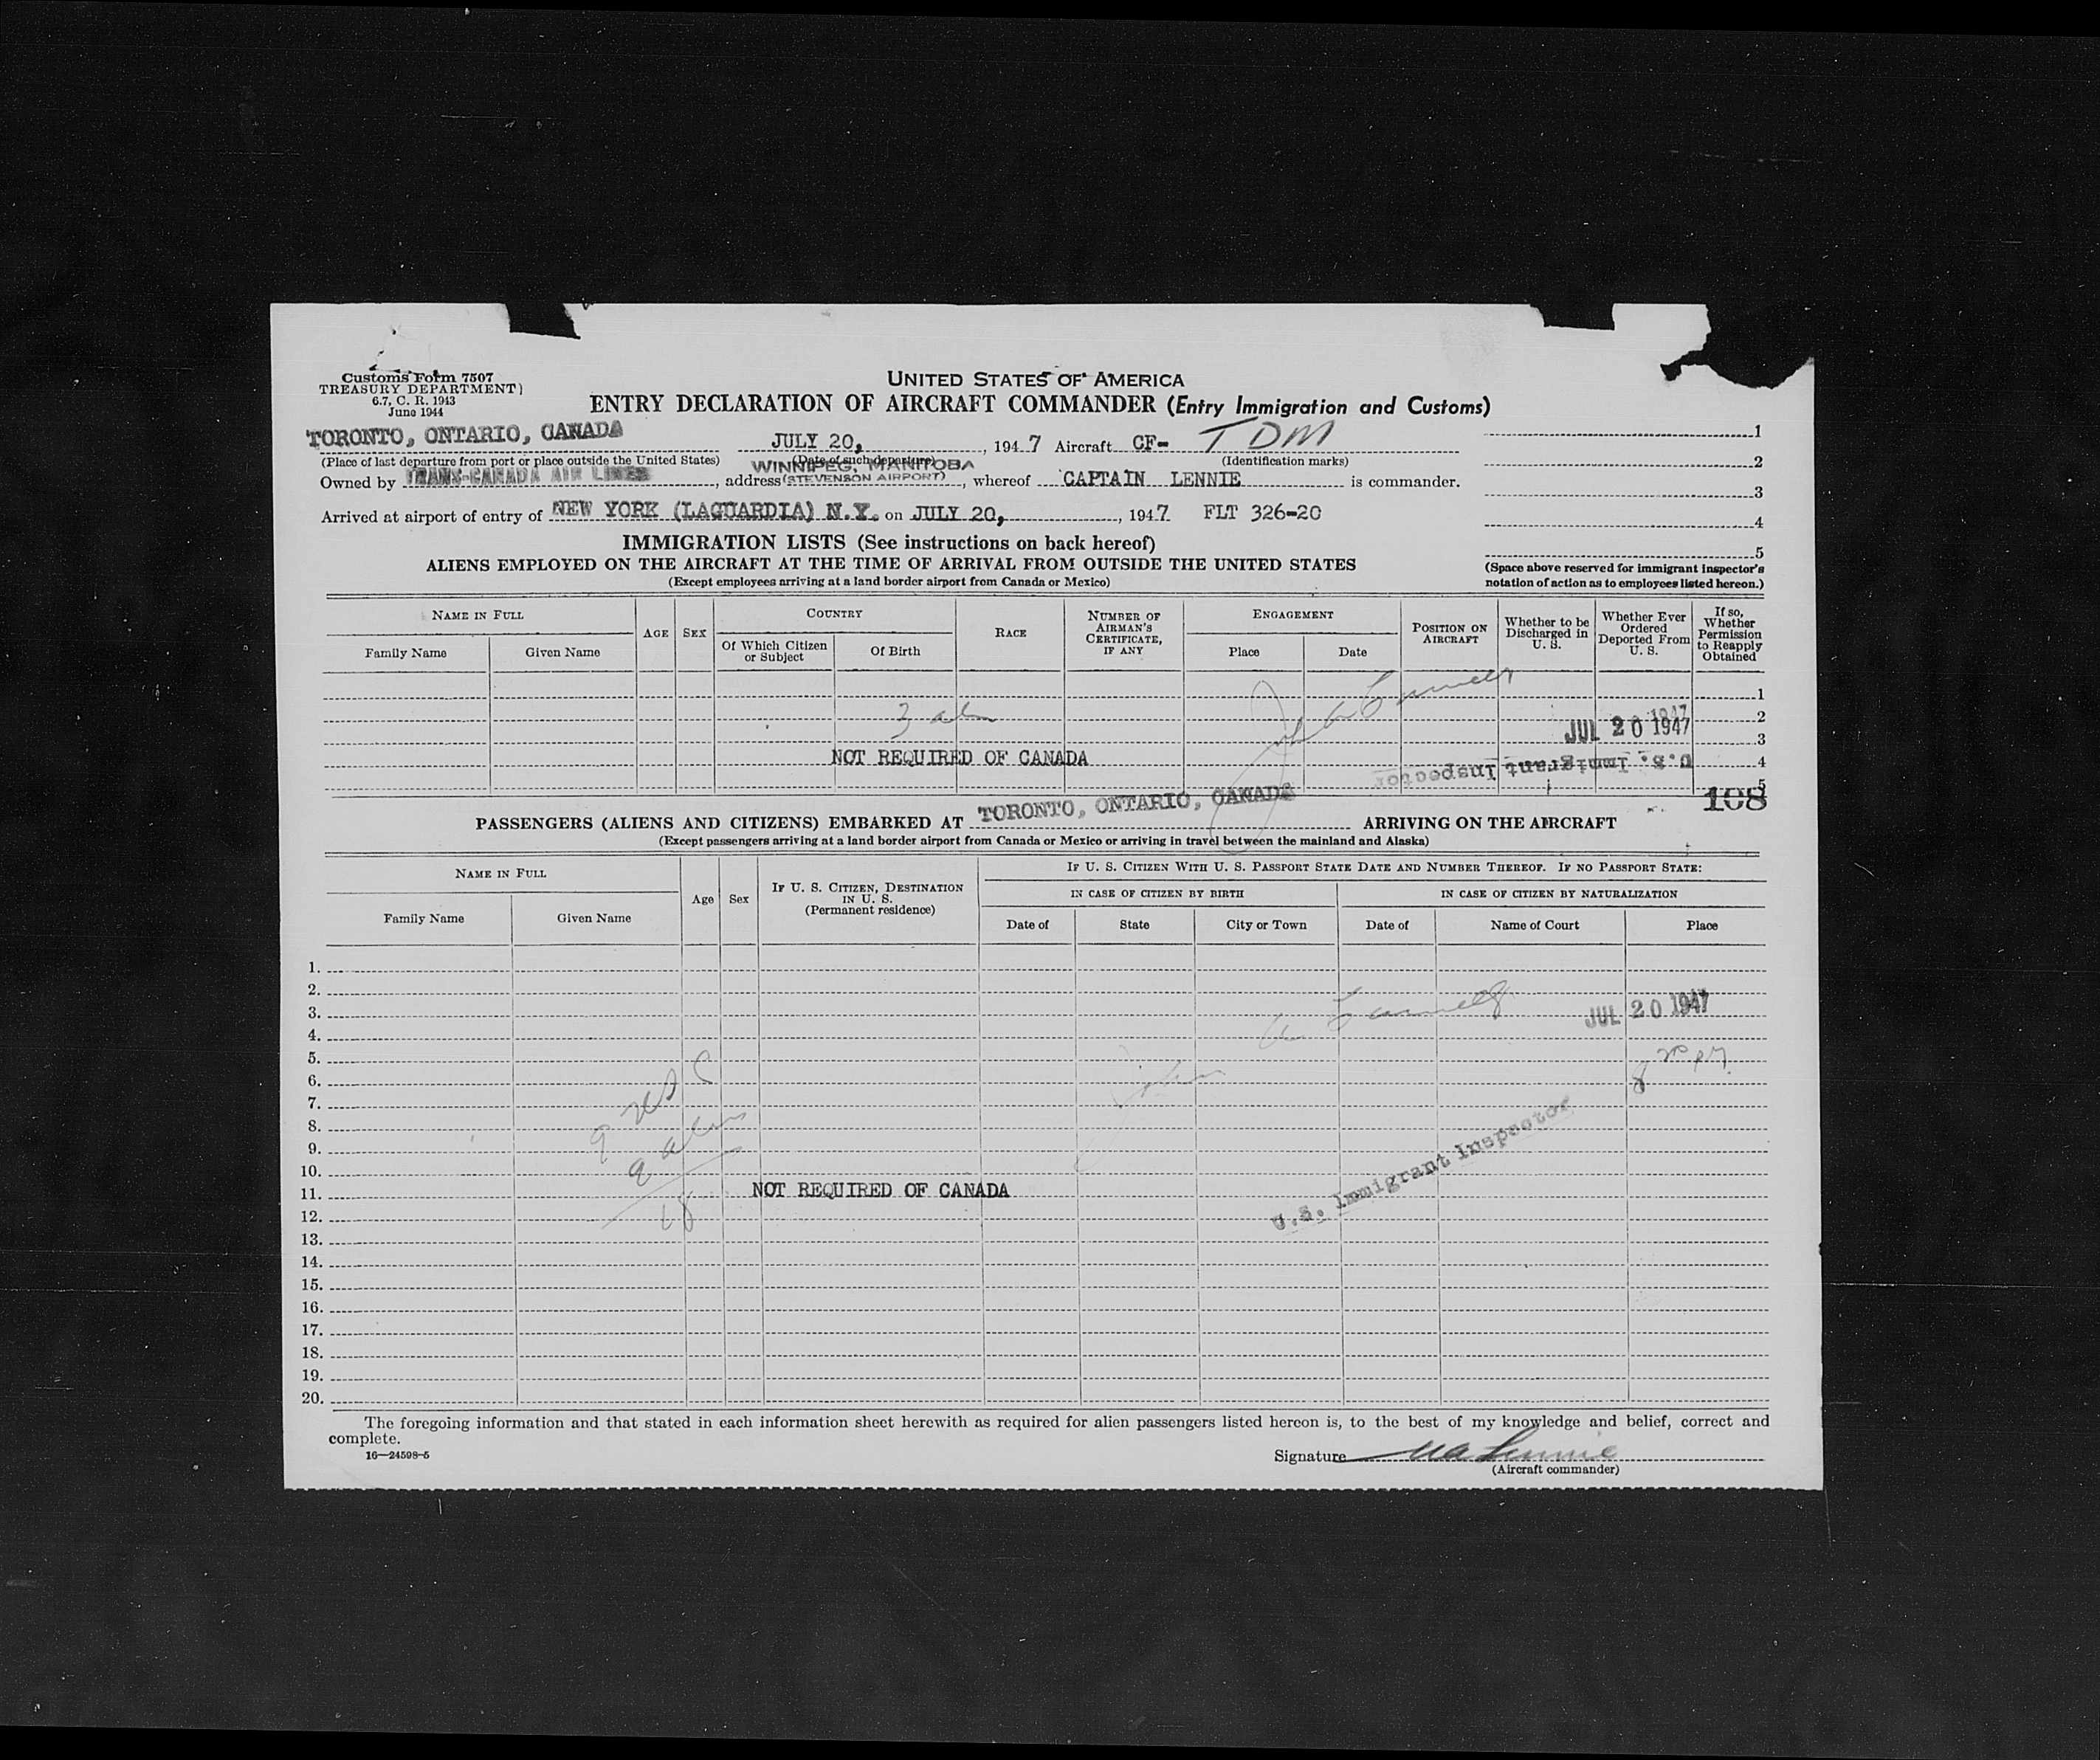 Customs Form 7507
TREASURY DEPARTMENT)
6.7, C. R. 1943
June 1944
UNITED STATES OF AMERICA
ENTRY DECLARATION OF AIRCRAFT COMMANDER (Entry Immigration and Customs)
TORONTO, ONTARIO, CANADA JULY 20, , 1947 Aircraft CF- TDM
(Place of last departure from port or place outside the United States) (Date of such departure) (Identification marks)
WINNIPEG, MANITOBA
Owned by TRANS-CANADA AIR LINES, address (STEVENSON AIRPORT), whereof CAPTAIN LENNIE is commander.
Arrived at airport of entry of NEW YORK (LAGUARDIA) N.Y. on JULY 20, , 1947 FLT 326-20
1
2
3
4
5
(Space above reserved for immigrant inspector's
notation of action as to employees listed hereon.)
IMMIGRATION LISTS (See instructions on back hereof)
ALIENS EMPLOYED ON THE AIRCRAFT AT THE TIME OF ARRIVAL FROM OUTSIDE THE UNITED STATES
(Except employees arriving at a land border airport from Canada or Mexico)
NAME IN FULL
Family Name
Given Name
AGE
SEX
COUNTRY
Of Which Citizen
or Subject
Of Birth
RACE
NUMBER OF
AIRMAN'S
CERTIFICATE,
IF ANY
ENGAGEMENT
Place
Date
POSITION ON
AIRCRAFT
Whether to be
Discharged in
U. S.
Whether Ever
Ordered
Deported From
U. S.
If so,
Whether
Permission
to Reapply
Obtained
1
1947
2
3
JUL 20 1947
3
NOT REQUIRED OF CANADA
4
U.S. Immigrant Inspector
5
108
PASSENGERS (ALIENS AND CITIZENS) EMBARKED AT TORONTO, ONTARIO, CANADA ARRIVING ON THE AIRCRAFT
(Except passengers arriving at a land border airport from Canada or Mexico or arriving in travel between the mainland and Alaska)
NAME IN FULL
Family Name
Given Name
Age
Sex
IF U. S. CITIZEN, DESTINATION
IN U. S.
(Permanent residence)
IF U. S. CITIZEN WITH U. S. PASSPORT STATE DATE AND NUMBER THEREOF. IF NO PASSPORT STATE:
IN CASE OF CITIZEN BY BIRTH
Date of
State
City or Town
IN CASE OF CITIZEN BY NATURALIZATION
Date of
Name of Court
Place
1.
2.
3. JUL 20 1947
4.
5.
6.
7.
8. 9
9. 9
10.
11. NOT REQUIRED OF CANADA
U.S. Immigrant Inspector
12. 18
13.
14.
15.
16.
17.
18.
19.
20.
The foregoing information and that stated in each information sheet herewith as required for alien passengers listed hereon is, to the best of my knowledge and belief, correct and
complete.
16—24598-5
Signature Lennie
(Aircraft commander)